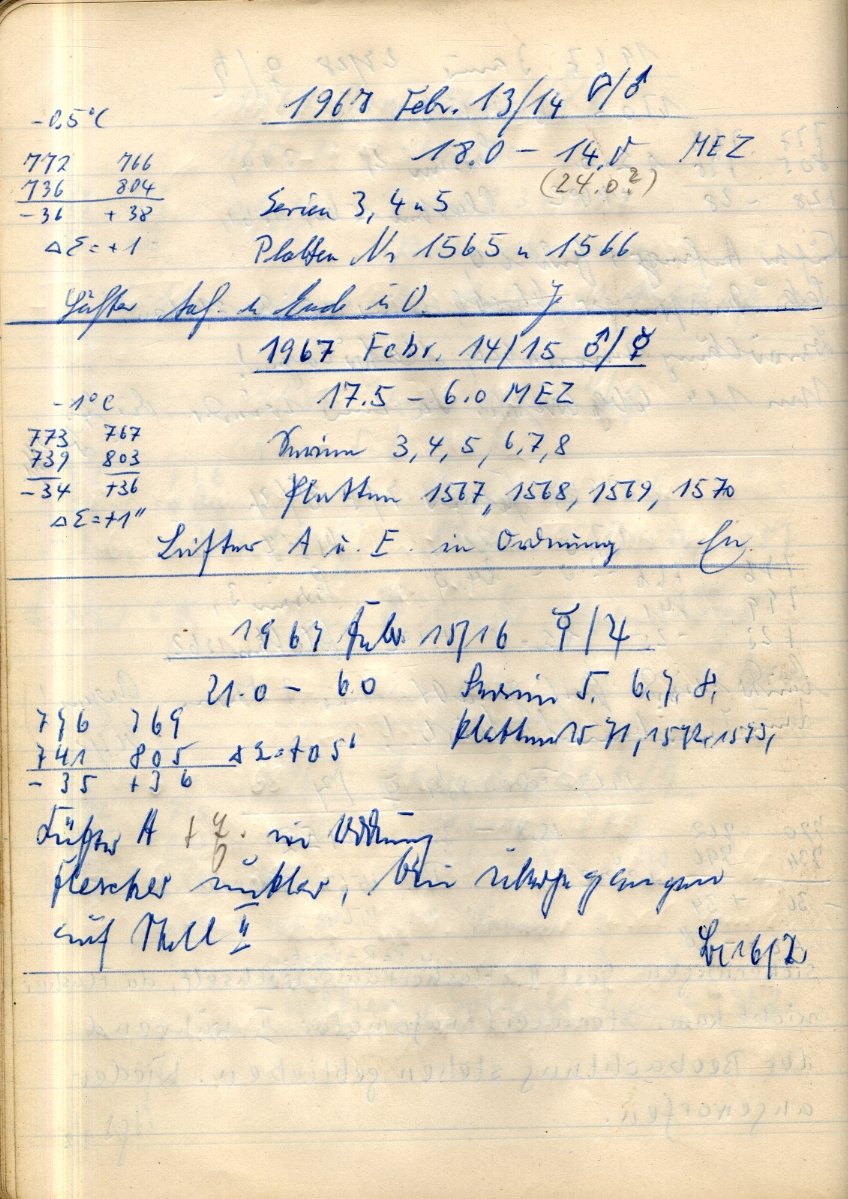 1967 Febr. 13/14 ☾/♂
-0.5°C
18.0 – 14.0 MEZ
(24.0?)
772 766
736 804
-36 +38
Δε = +1
Serien 3, 4 u 5
Platten Nr 1565 u 1566
Lüfter Anf. u Ende i. O.
1967 Febr. 14/15 ♂/☿
17.5 – 6.0 MEZ
-1°C
773 767
739 803
-34 +36
Δε = +1"
Serien 3, 4, 5, 6, 7, 8
Platten 1567, 1568, 1569, 1570
Lüfter A u. E. in Ordnung
1967 Febr 15/16 ☿/♃
21.0 – 6.0 Serien 5. 6. 7. 8.
776 769
741 805 Δε = +0.5"
-35 +36
Platten 1571, 1572, 1573,
Lüfter A + E. in Ordnung
unklar, bin übergegangen
auf II